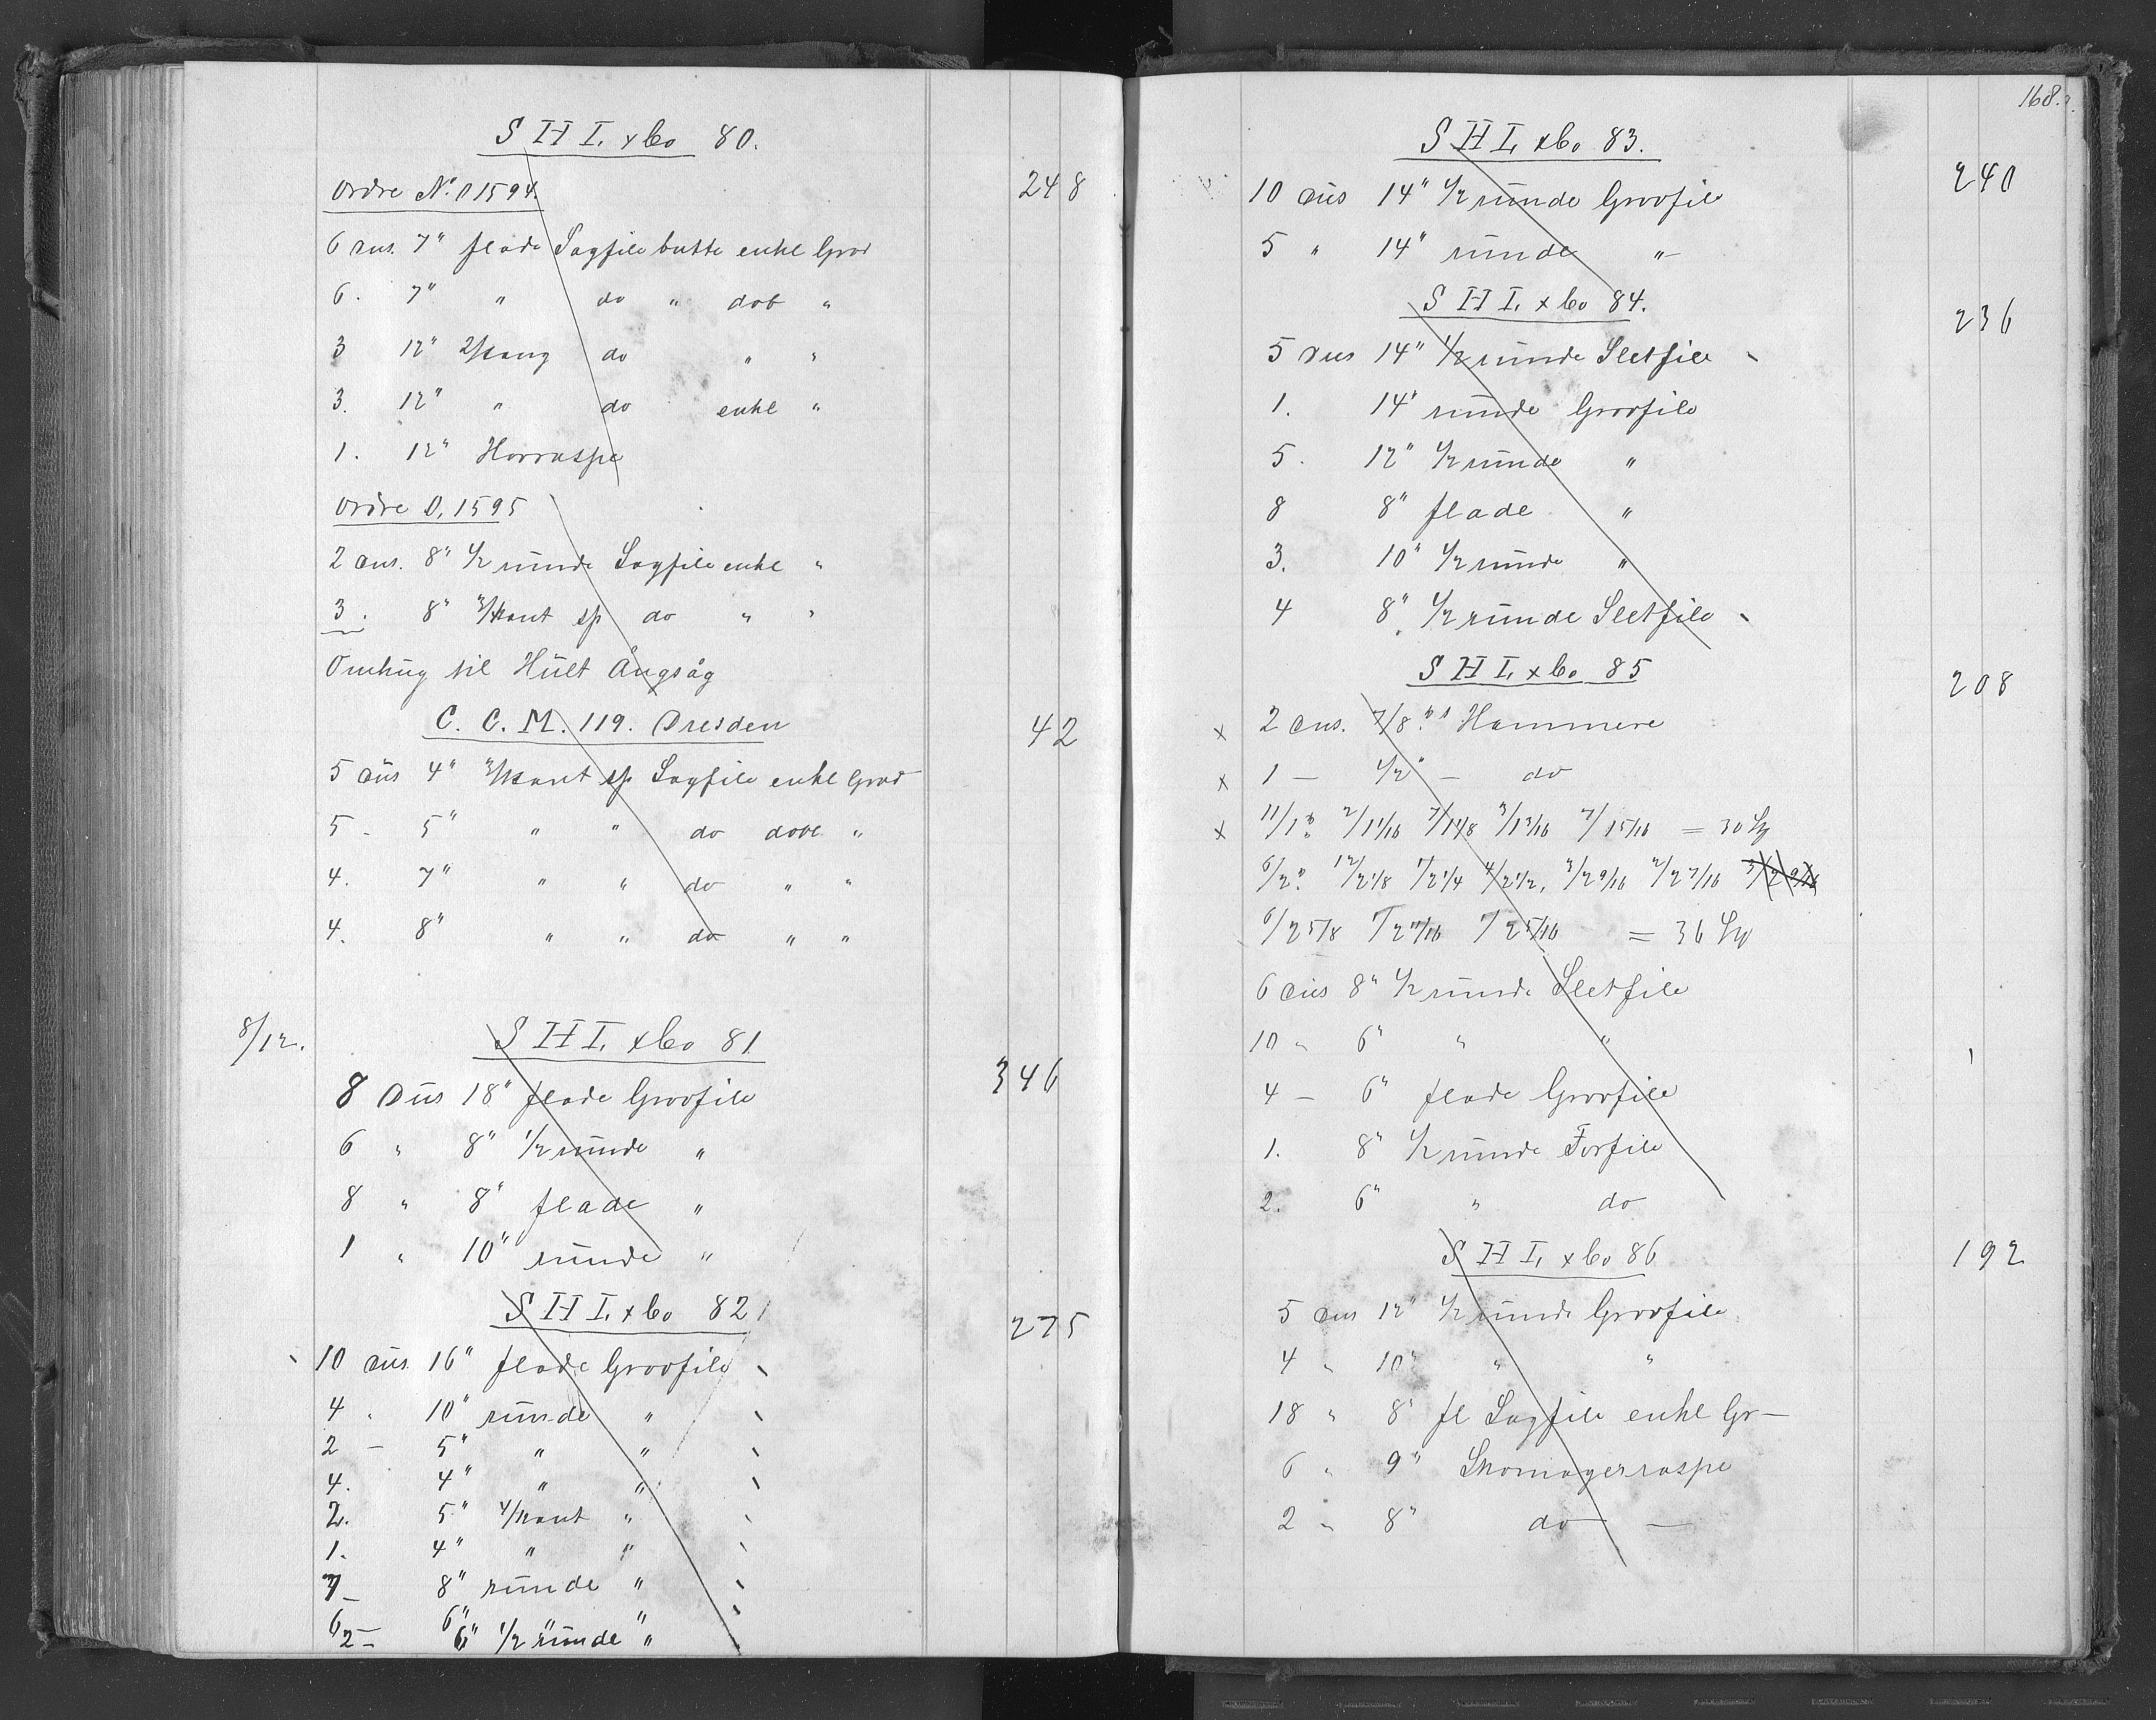 S H I. & Co 80.
Ordre No. O 1594.
248
6 dus. 7" flade Sagfile butte enkl Grad
6. 7" " do " dob "
3 12" 2/kang do " "
3. 12" " do enkl "
1. 12" Hovraspe
Ordre O. 1595
2 dus. 8" 1/2 runde Sagfile enkl "
3. 8" 3/kant sp do " "
Omhug til Hult Ångsåg
C. C. M. 119. Dresden
42
5 dus 4" 3/kant sp Sagfile enkl Grad
5 - 5" " " do dobl "
4. 7" " " do " "
4. 8" " " do " "
8/12.
S H I. & Co 81
346
8 Dus 18" flade Grovfile
6 " 8" 1/2 runde "
8 " 8" flade "
1 " 10" runde "
S H I. & Co 82
275
10 dus. 16" flade Grovfile
4 . 10" runde "
2 — 5" " "
4. 4" " "
2. 5" 4/kant "
1. 4" " "
7 - 8" runde "
6 6" " "
2 - 6" 1/2 runde "
168.
S H I. & Co 83.
240
10 dus 14" 1/2 runde Grovfile
5 " 14" runde "
S H I. & Co 84.
236
5 Dus 14" 1/2 runde Sletfile
1. 14" runde Grovfile
5. 12" 1/2 runde "
8 8" flade "
3. 10" 1/2 runde "
4 8" 1/2 runde Sletfile
S H I. & Co 85
208
x 2 dus. 7/8" Hammere
x 1 — 1/2" — do
x 11/1" 2/1 1/16 7/1 1/8 3/1 3/16 7/1 5/16 = 30
6/2" 12/2 1/8 7/2 1/4 4/2 1/2, 3/2 9/16 2/2 7/16
6/2 5/8 7/2 11/16 7/2 5/16 = 36
6 dus 8" 1/2 runde Sletfile
10 " 6" " "
4 — 6" flade Grovfile
1. 8" 1/2 runde Forfile
2. 6" " do
S H I. & Co 86
192
5 dus 12" 1/2 runde Grovfile
4 " 10" " "
18 " 8" fl Sagfile enkl Gr—
6 " 9" Skomagerraspe
2 " 8" do —